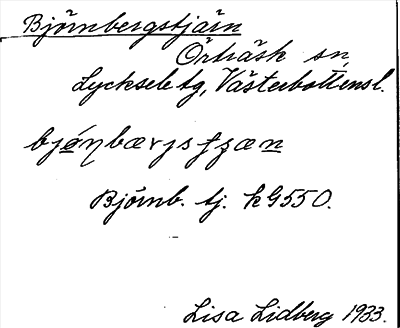 Björnbergstjärn
Örträsk sn,
Lycksele tg, Västerbottensl.
Björnb. tj. k G550.
Lisa Lidberg 1933.